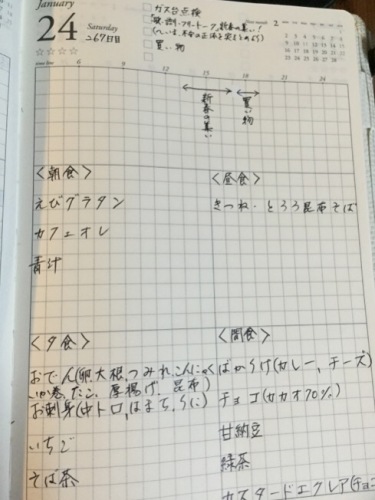 January
24
Saturday
267日目
☆☆☆☆
ガス台点検
新春の集い!
買い物
time line
6
9
12
15
18
21
24
新春の集い
買い物
<朝食>
えびグラタン
カフェオレ
青汁
<昼食>
きつね・とろろ昆布そば
<夕食>
おでん(卵、大根、つみれ、こんにゃく
いか巻、たこ、厚揚げ、昆布)
お刺身(中トロ、はまち、うに)
いちご
そば茶
<間食>
ばかうけ(カレー、チーズ)
チョコ(カカオ70%)
甘納豆
緑茶
カスタードエクレア(チョコ